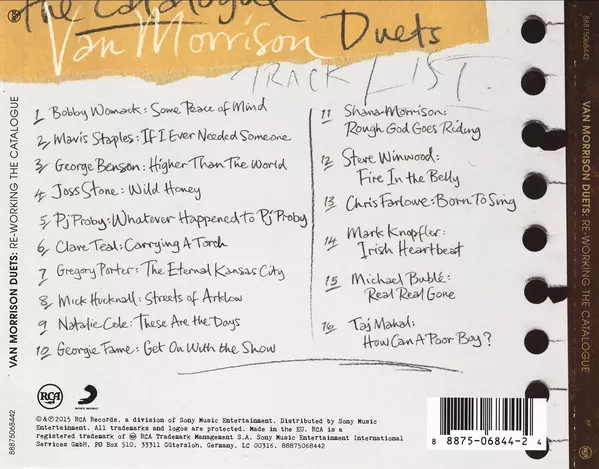 the Catalogue
Van Morrison Duets
TRACK LIST.
1 Bobby Womack: Some Peace of Mind
2 Mavis Staples: If I Ever Needed Someone
3 George Benson: Higher Than The World
4 Joss Stone: Wild Honey
5 PJ Proby: Whatever Happened to PJ Proby
6 Clare Teal: Carrying A Torch
7 Gregory Porter: The Eternal Kansas City
8 Mick Hucknall: Streets of Arklow
9 Natalie Cole: These Are the Days
10 Georgie Fame: Get On With the Show
11 Shana Morrison:
Rough God Goes Riding
12 Steve Winwood:
Fire In the Belly
13 Chris Farlowe: Born To Sing
14 Mark Knopfler:
Irish Heartbeat
15 Michael Bublé:
Real Real Gone
16 Taj Mahal:
How Can A Poor Boy?
RCA
SONY MUSIC
©&℗2015 RCA Records, a division of Sony Music Entertainment. Distributed by Sony Music
Entertainment. All trademarks and logos are protected. Made in the EU. RCA is a
registered trademark of RCA Trademark Management S.A. Sony Music Entertainment International
Services GmbH, PO Box 510, 33311 Gütersloh, Germany. LC 00316. 88875068442
8 8875-06844-2 4
VAN MORRISON DUETS: RE-WORKING THE CATALOGUE
88875068442
88875068442
VAN MORRISON DUETS: RE-WORKING THE CATALOGUE